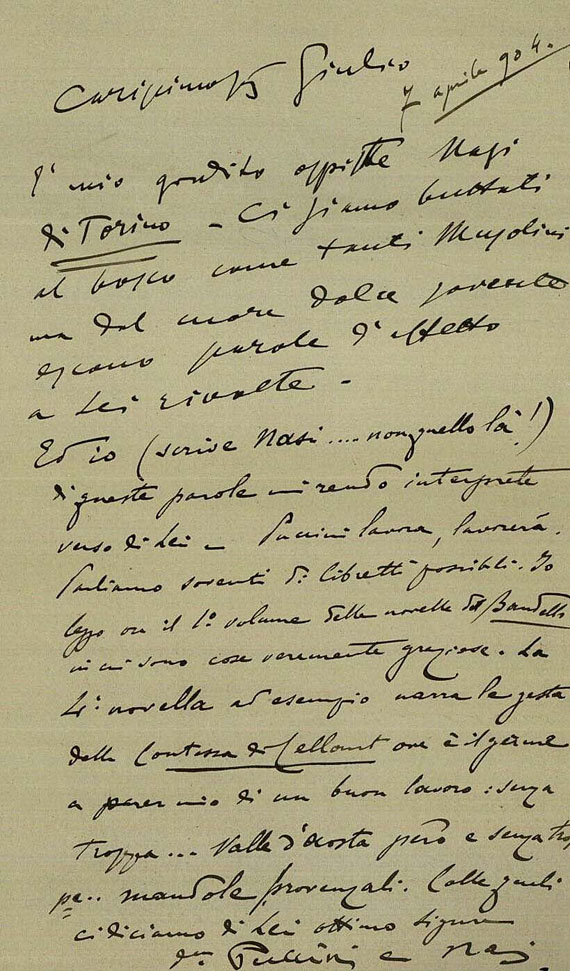 Carissimo Giulio
7 aprile 904.
È mio gradito ospite Nasi
di Torino – Ci siamo buttati
al bosco come tanti Musolini
ma dal cuore dolce sovente
escono parole d'affetto
a Lei rivolte –
Ed io (scrive Nasi .... non quello là!)
di queste parole mi rendo interprete
verso di Lei – Puccini lavora, lavorerà.
Parliamo soventi di libretti possibili. Io
leggo ora il 1º volume delle novelle del Bandello
in cui sono cose veramente graziose. La
4ª novella ad esempio narra le gesta
della Contessa di Cellant ove è il germe
a parer mio di un buon lavoro: senza
troppa... Valle d'Aosta però e senza trop
pe.. mandole provenzali. Colle quali
ci diciamo di Lei ottimo signore
Puccini e Nasi.